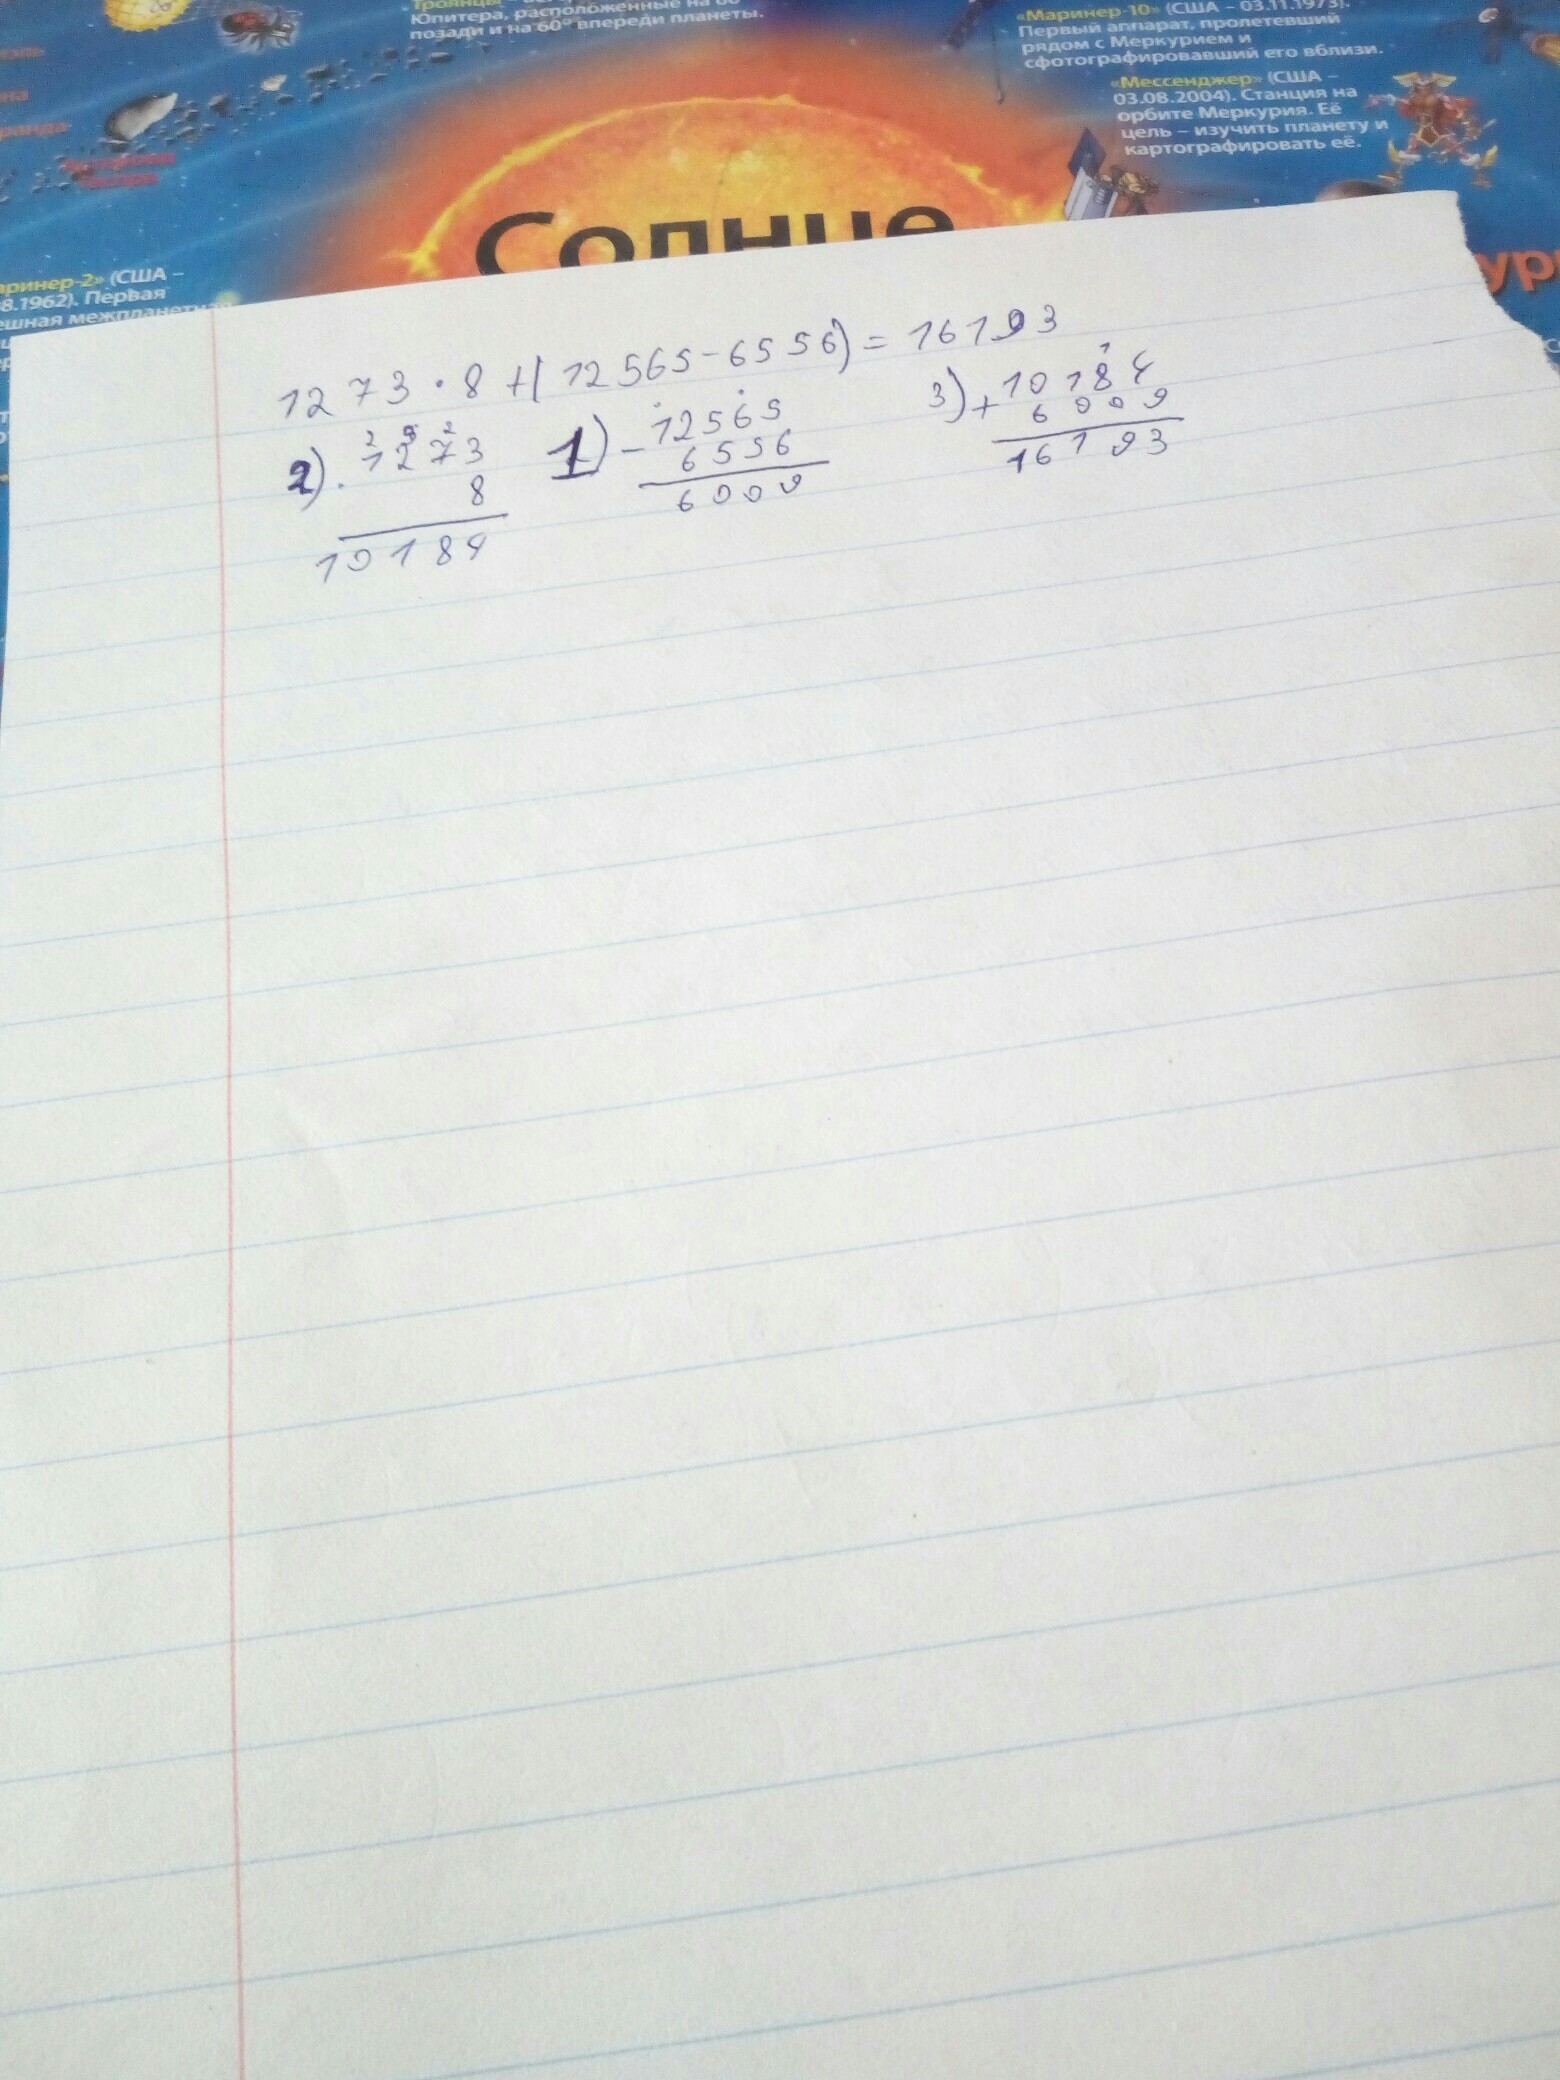 Юпитера, расположенные на 60°
позади и на 60° впереди планеты.
«Маринер-10» (США – 03.11.1973).
Первый аппарат, пролетевший
рядом с Меркурием и
сфотографировавший его вблизи.
«Мессенджер» (США –
03.08.2004). Станция на
орбите Меркурия. Её
цель – изучить планету и
картографировать её.
Солнце
аринер-2» (США –
8.1962). Первая
ешная межпланетная
1273 · 8 + (12565 - 6556) = 16193
2) · 1273
8
10184
1) - 12565
6556
6009
3) + 10184
6009
16193